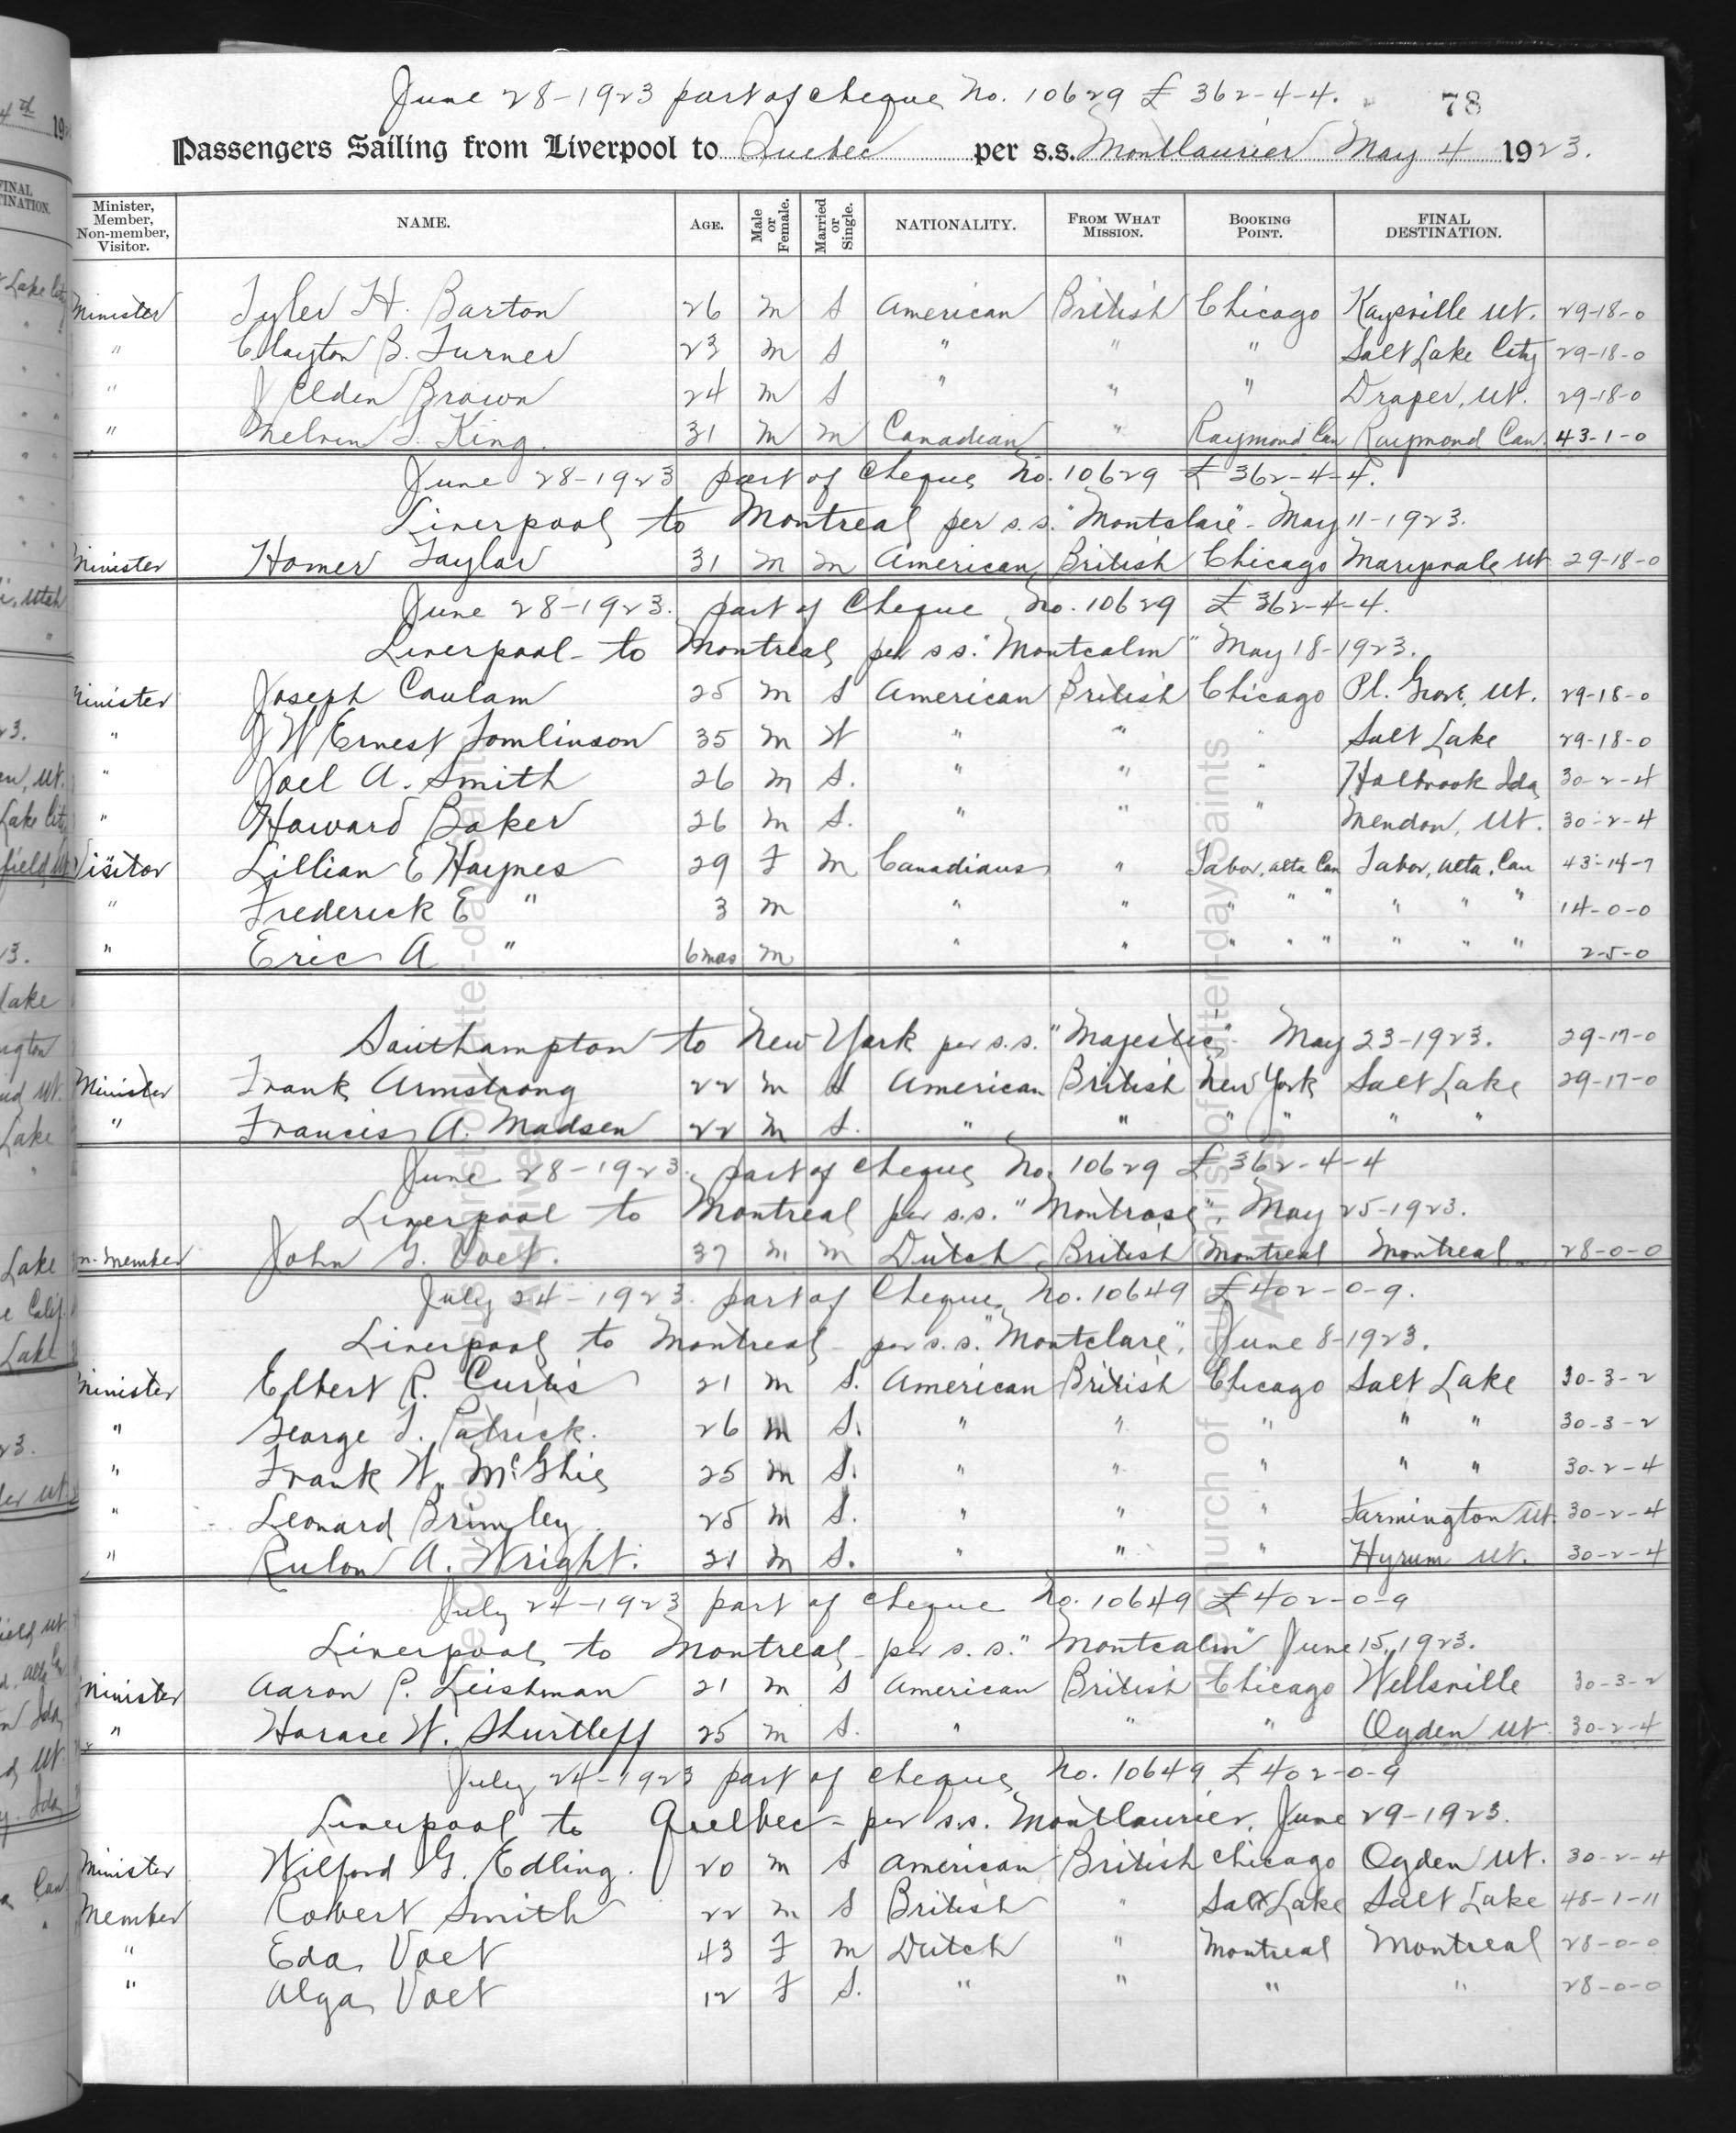 June 28-1923 part of cheque No. 10629 £ 362-4-4. 78
Passengers Sailing from Liverpool to Quebec per s.s. Montlaurier May 4 1923.
Minister, Member, Non-member, Visitor. NAME. AGE. Male or Female. Married or Single. NATIONALITY. FROM WHAT MISSION. BOOKING POINT. FINAL DESTINATION.
Minister Tyler H. Barton 26 m S American British Chicago Kaysville Ut. 29-18-0
" Clayton B. Turner 23 m S " " " Salt Lake City 29-18-0
" J Elden Brown 24 m S " " " Draper, Ut. 29-18-0
" Melvin S. King. 31 m m Canadian " Raymond Can Raymond Can. 43-1-0
June 28-1923 part of Cheque No. 10629 £ 362-4-4.
Liverpool to Montreal per s.s. "Montclare" - May 11-1923.
Minister Homer Taylor 31 m m American British Chicago Marysvale Ut 29-18-0
June 28-1923. part of Cheque No. 10629 £ 362-4-4.
Liverpool - to Montreal per s s. "Montcalm" May 18-1923.
Minister Joseph Coulam 25 m S American British Chicago Pl. Grove, Ut. 29-18-0
" J W Ernest Tomlinson 35 m W " " " Salt Lake 29-18-0
" Joel A. Smith 26 m S. " " " Holbrook Ida 30-2-4
" Howard Baker 26 m S. " " " Mendon, Ut. 30-2-4
Visitor Lillian E Haynes 29 F m Canadians " Tabor, Alta Can Tabor, Alta, Can 43-14-7
" Frederick E " 3 m " " " " " " " " 14-0-0
" Eric A " 6 mos m " " " " " " " " 2-5-0
Southampton to New York per s.s. "Majestic" May 23-1923. 29-17-0
Minister Frank Armstrong 22 m S American British New York Salt Lake 29-17-0
" Francis A. Madsen 22 m S. " " " " " "
June 28-1923. part of cheque No. 10629 £ 362-4-4
Liverpool to Montreal per s.s. "Montrose". May 25-1923.
n-member John G. Voet. 37 m m Dutch British Montreal Montreal 28-0-0
July 24-1923. part of Cheque No. 10649 £ 402-0-9.
Liverpool to Montreal - per s.s. "Montclare", June 8-1923.
Minister Elbert R. Curtis 21 m S. American British Chicago Salt Lake 30-3-2
" George T. Patrick. 26 m S. " " " " " 30-3-2
" Frank W. McGhie 25 m S. " " " " " 30-2-4
" Leonard Brimley 25 m S. " " " Farmington Ut. 30-2-4
" Rulon A. Wright. 21 m S. " " " Hyrum Ut. 30-2-4
July 24-1923 part of cheque No. 10649 £ 402-0-9
Liverpool to Montreal - per s.s. "Montcalm" June 15, 1923.
Minister Aaron P. Leishman 21 m S American British Chicago Wellsville 30-3-2
" Horace W. Shurtleff 25 m S. " " " Ogden Ut. 30-2-4
July 24-1923 part of cheque No. 10649 £ 402-0-9
Liverpool to Quelbec - per s.s. Montlaurier. June 29-1923.
Minister Wilford G. Edling. 20 m S American British Chicago Ogden Ut. 30-2-4
Member Robert Smith 22 m S British " Salt Lake Salt Lake 48-1-11
" Eda Voet 43 F m Dutch " Montreal Montreal 28-0-0
" Alga Voet 12 F S. " " " " 28-0-0